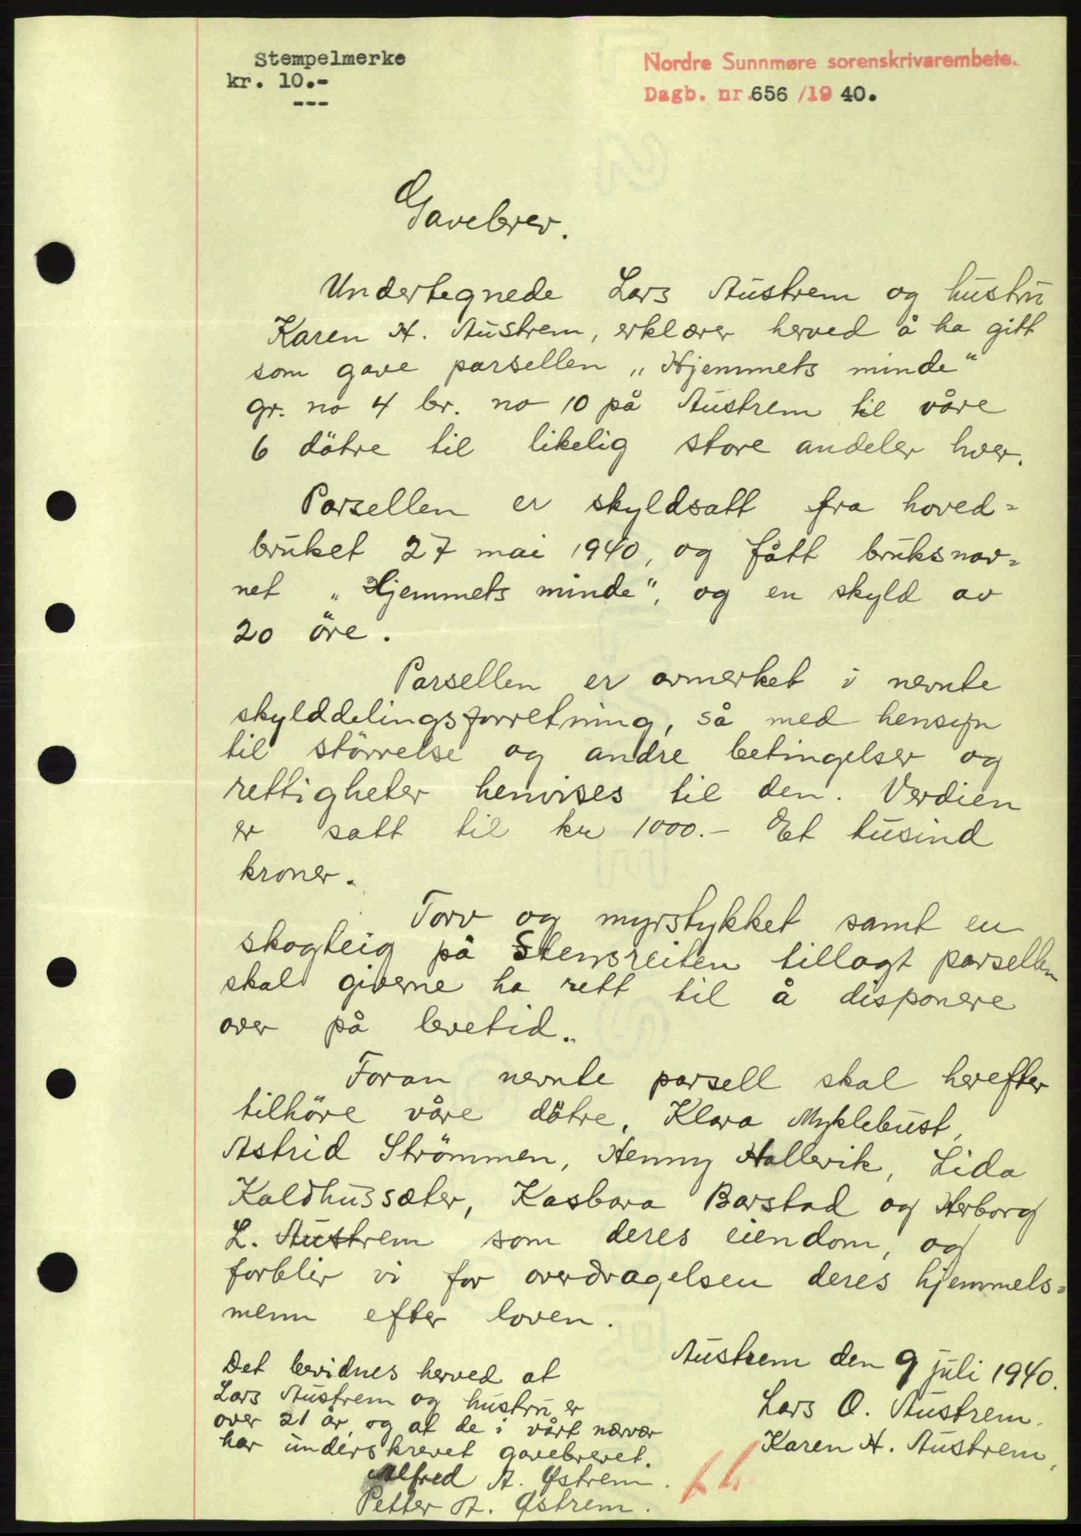 Stempelmerke
kr. 10.-
---
Nordre Sunnmøre sorenskrivarembete.
Dagb. nr. 656 /19 40.
Gavebrev.
Undertegnede Lars Austrem og hustru
Karen H. Austrem, erklærer herved å ha gitt
som gave parsellen „Hjemmets minde"
gr. no 4 br. no 10 på Austrem til våre
6 dötre til likelig store andeler hver.
Parsellen er skyldsatt fra hoved=
bruket 27 mai 1940, og fått bruksnav=
net „Hjemmets minde", og en skyld av
20 öre.
Parsellen er avmerket i nevnte
skylddelingsforretning, så med hensyn
til störrelse og andre betingelser og
rettigheter henvises til den. Verdien
er satt til kr 1000.- Et tusind
kroner.
Torv og myrstykket samt en
skogteig på Stensreiten tillagt parsellen
skal giverne ha rett til å disponere
over på levetid.
Foran nevnte parsell skal herefter
tilhöre våre dötre, Klara Myklebust,
Astrid Strömmen, Henny Hallerik, Lida
Kaldhussæter, Kasbara Barstad og Herborg
L. Austrem som deres eiendom, og
forblir vi for overdragelsen deres hjemmels=
menn efter loven.
Austrem den 9 juli 1940.
Lars O. Austrem.
Karen H. Austrem.
Det bevidnes herved at
Lars Austrem og hustru er
over 21 år, og at de i vårt nærvær
har underskrevet gavebrevet.
Alfred A. Østrem.
Petter A. Østrem.